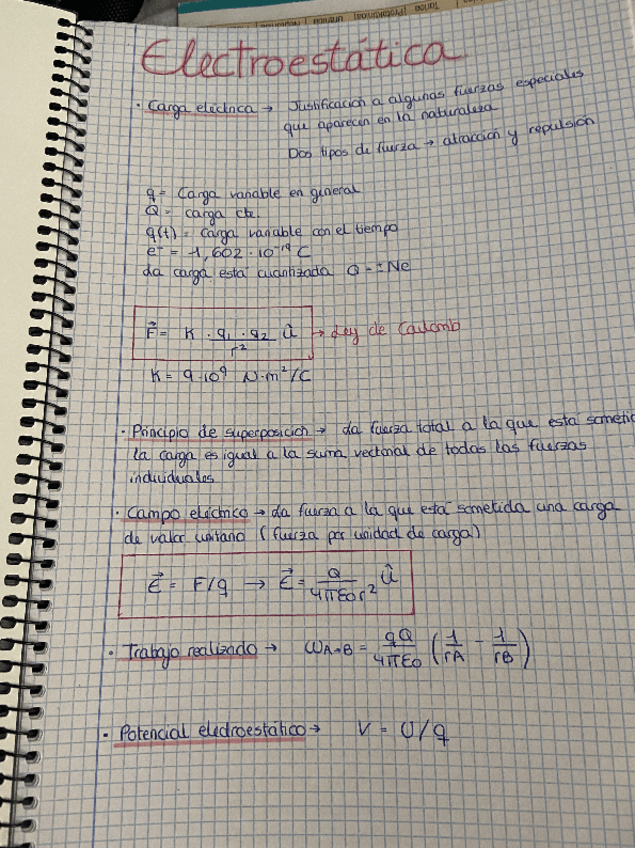 Electroestática
· Carga eléctrica → Justificación a algunas fuerzas especiales
que aparecen en la naturaleza
Dos tipos de fuerza → atracción y repulsión
q = Carga variable en general
Q = carga cte.
q(t) = carga variable con el tiempo
e⁻ = -1,602 · 10⁻¹⁹ C
La carga está cuantizada Q = ±Ne
F⃗ = K · q₁ · q₂ / r² û → Ley de Coulomb
K = 9·10⁹ N·m²/C
· Principio de superposición → La fuerza total a la que está
la carga es igual a la suma vectorial de todas las fuerzas
individuales
· Campo eléctrico → La fuerza a la que está sometida una carga
de valor unitario (fuerza por unidad de carga)
E⃗ = F/q → E⃗ = Q / 4πε₀r² û
· Trabajo realizado → W_A→B = qQ / 4πε₀ (1/rA - 1/rB)
· Potencial electroestático → V = U/q